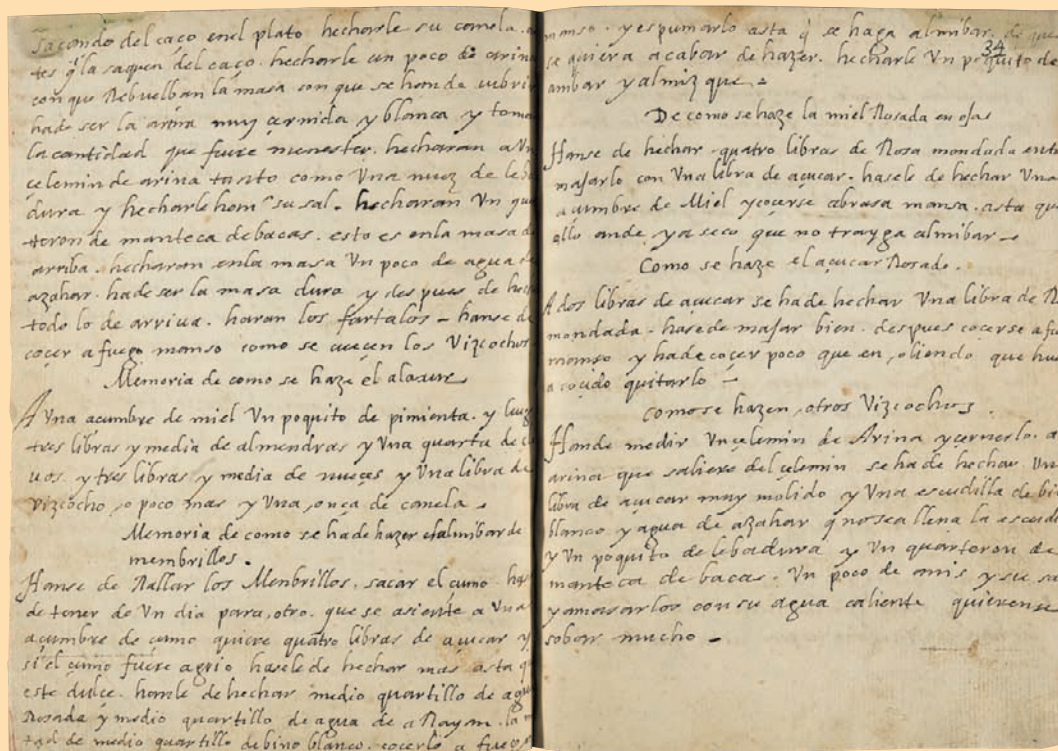 sacando del caço en el plato hecharle su canela. an
tes q̃ la saquen del caço. hecharle un poco de arina
con que Rebuelban la masa con que se han de cubrir
ha de ser la arina muy çernida y blanca y toma
la cantidad que fuere menester. hecharan a Un
çelemin de arina tanto como Una nuez de leba
dura y hecharle han su sal. hecharan Un qua
teron de manteca de bacas. esto es en la masa de
arriba. hecharan en la masa Un poco de agua de
azahar. ha de ser la masa dura y despues de hecho
todo lo de arriua. haran los fartalos – hanse de
coçer a fuego manso como se cueçen los Vizcochos.
Memoria de como se haze el alaxur
A Una açumbre de miel Un poquito de pimienta. y luego
tres libras y media de almendras y Una quarta de cla
uos. y tres libras y media de nueçes y Una libra de
Vizcocho, o poco mas y Una, onça de canela.
Memoria de como se ha de hazer el almibar de
membrillos.
Hanse de Rallar los Menbrillos. sacar el çumo. hase
de tener de Un dia para, otro. que se asiente a Una
açumbre de çumo quiere quatro libras de açucar y
si el çumo fuere agrio hasele de hechar mas asta q̃
este dulce. hanle de hechar medio quartillo de agua
Rosada y medio quartillo de agua de aRayan. la mi
tad de medio quartillo de bino blanco. cocerlo a fuego
34
manso. y espumarlo asta q̃ se haga almibar. de que
se quiera acabar de hazer. hecharle Un poquito de
ambar y almizque –
De como se haze la miel Rosada en ojas
Hanse de hechar quatro libras de Rosa mondada
majarlo con Una libra de açucar. hasele de hechar Una
açumbre de Miel y coçerse abrasa mansa. asta que
ello ande ya seco que no trayga almibar –
Como se haze el açucar Rosado.
A dos libras de açucar se ha de hechar Una libra de Ro
mondada – hase de majar bien. despues coçerse a fu
manso y ha de coçer poco que en, oliendo que hue
a coçido quitarlo –
como se hazen, otros Vizcochos.
Hande medir Un çelemin de Arina y çernerlo. a
arina que saliere del çelemin se ha de hechar. Un
libra de açucar muy molido y Una escudilla de bi
blanco y agua de azahar q no sea llena la escudi
y Un poquito de lebadura y Un quarteron de
manteca de bacas. Un poco de anis y su sa
y amasarlos con su agua caliente quierense
sobar mucho –